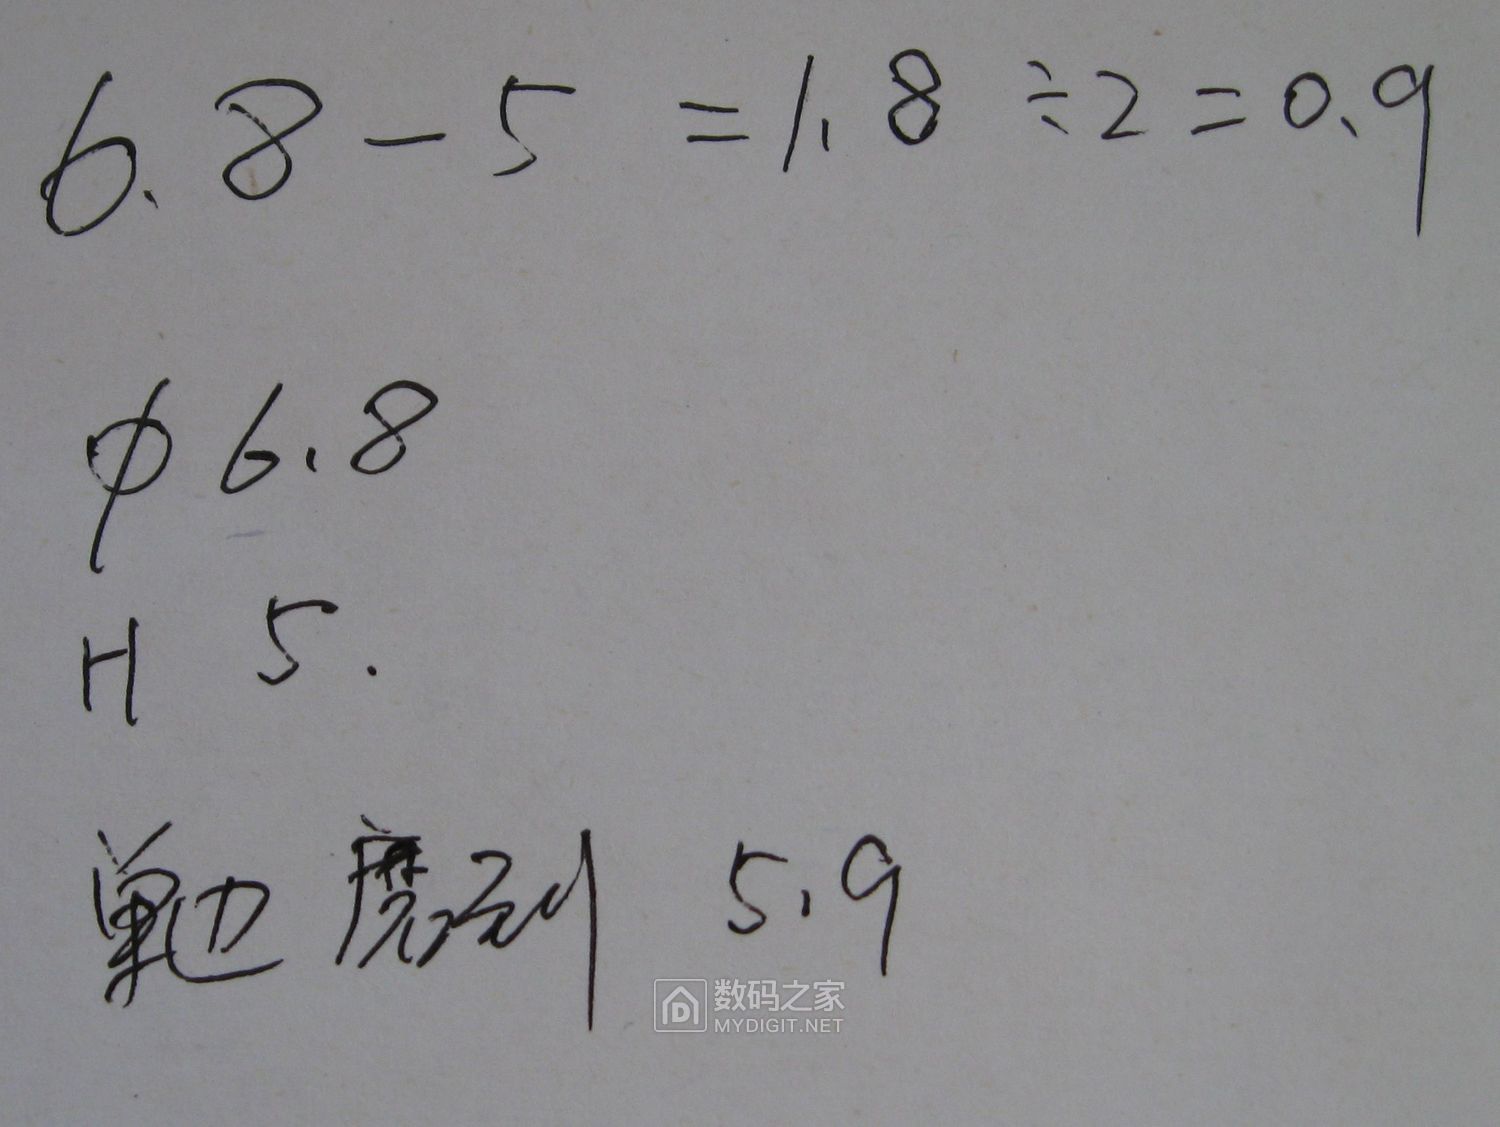 6.8-5=1.8÷2=0.9
φ6.8
H 5.
单边磨到 5.9
数码之家
MYDIGIT.NET